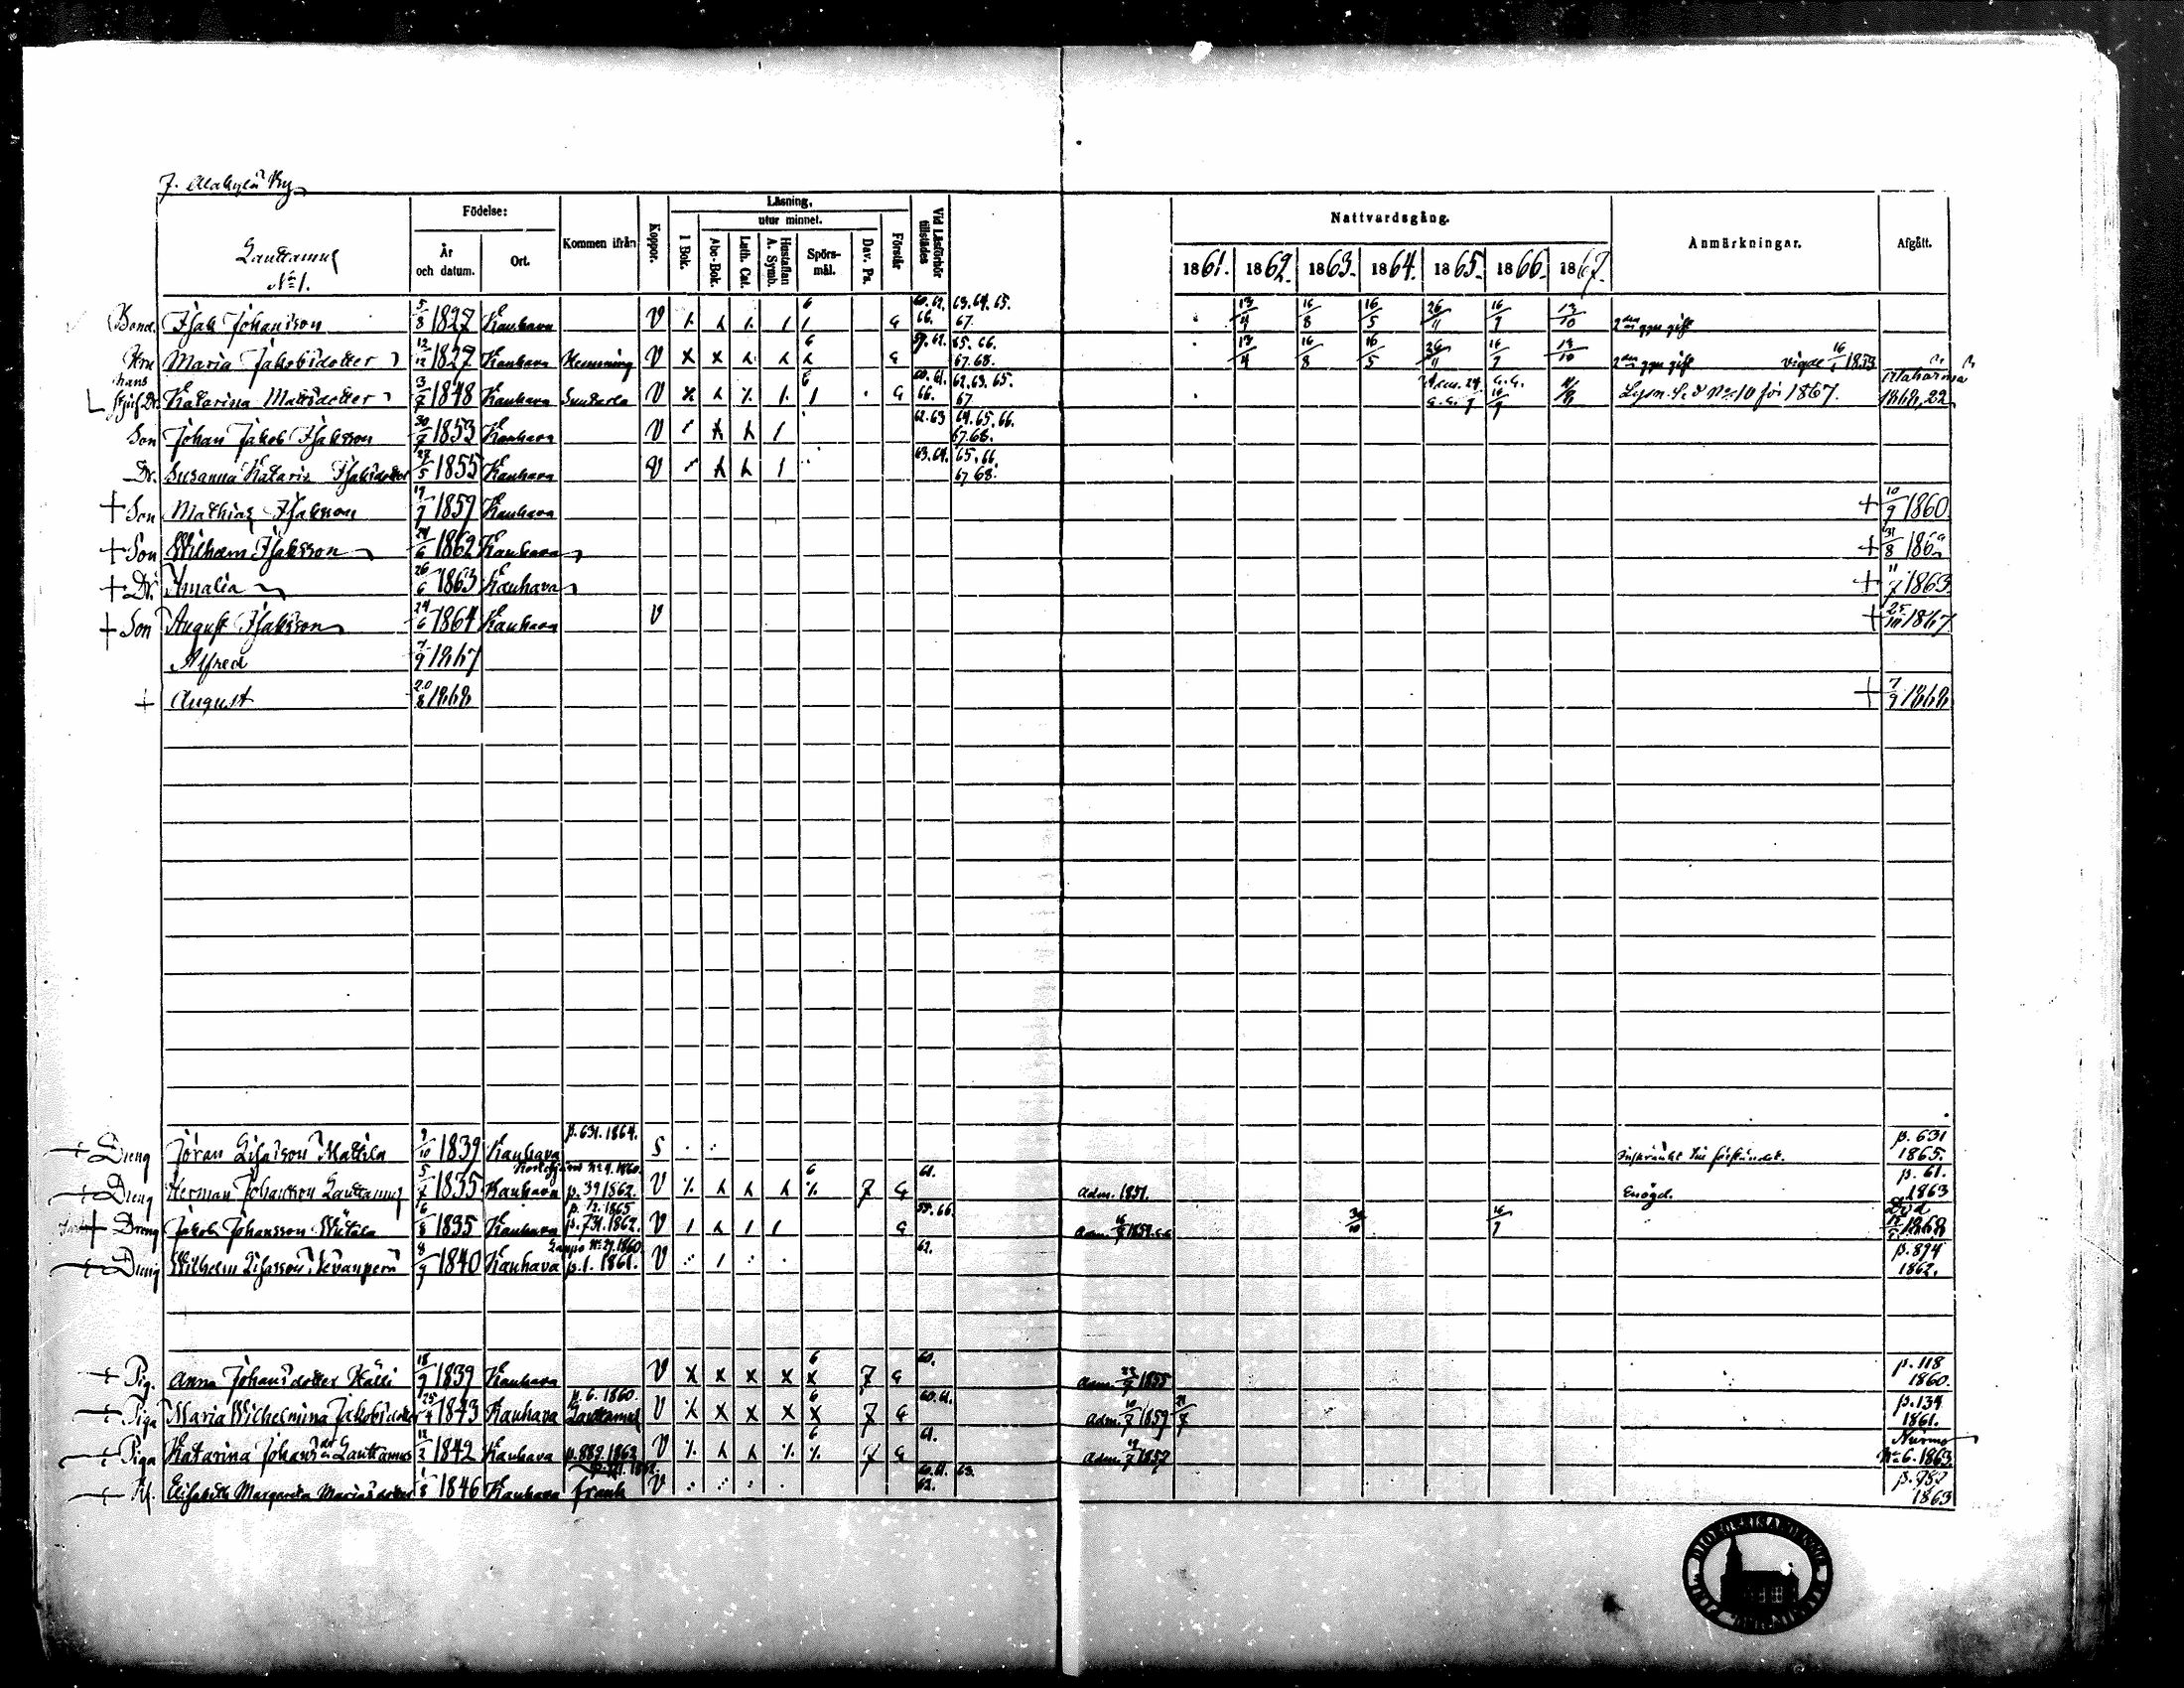 7. Alakylä By
Lauttamus
№ 1.
Födelse:
År och datum.
Ort.
Kommen ifrån
Koppor.
Läsning,
utur minnet.
I Bok.
Abc-Bok.
Luth. Cat.
Hustaflan A. Symb.
Spörs-mål.
Dav. Ps.
Förstår
Vid Läsförhör tillstädes
Nattvardsgång.
1861. 1862. 1863. 1864. 1865. 1866. 1867.
Anmärkningar.
Afgått.
Bond. Isak Johansson 5/8 1827 Kauhava V 6 60. 62. 66. 63. 64. 65. 67. 13/4 16/8 16/5 26/11 16/9 13/10 2den ggn gift
Hru Maria Jakobsdotter 12/12 1827 Kauhava Hemming V 6 59. 62. 65. 66. 67. 68. 13/4 16/8 16/5 26/11 16/9 13/10 2den ggn gift vigde 1853
hans styfdr. Katarina Mattsdotter 3/7 1848 Kauhava V 6 60. 61. 66. 62. 63. 65. 67. Lysn. Sed. No 10 för 1867. 1868, 22
Son Johan Jakob Isaksson 30/7 1853 Kauhava V 62. 63 64. 65. 66. 67. 68.
Dr. Susanna Katarin Isaksdotter 27/5 1855 Kauhava V 63. 64. 65. 66. 67 68.
+ Son Mathias Isaksson 1859 Kauhava + 10/9 1860
+ Son Wilhelm Isaksson 24/6 1862 Kauhava + 31/8
+ Dr. Amalia 26/6 1863 Kauhava + 11/7 1863
+ Son August Isaksson 24/6 1864 Kauhava V + 25/10 1867
Alfred 7/9 1867
+ August 20/8 1868 + 7/9 1868
Dreng Jöran Mattila 9/10 1839 Kauhava p. 631. 1864. S p. 631 1865.
Dreng Herman Johansson Lauttamus 5/7 1835 Kauhava p. 39 1862. V 6 7 61. Adm. 1851. Enögd. p. 61. 1863
+ Dreng Jakob Johansson 6/8 1835 Kauhava p. 12. 1865 p. 731. 1862. V 59. 66. 30/10 16/9 1868
Dreng Wilhelm 8/9 1840 Kauhava Lappo No 29. 1860 p. 1. 1861. V 62. p. 894 1862.
Pig. Anna Johansdotter 18/9 1839 Kauhava V 6 7 60. Adm. 1855 p. 118 1860.
Piga Maria Wilhelmina Jakobsdotter 25/4 1843 Kauhava p. 6. 1860. Lauttamus V 6 7 60. 61. Adm. 10/7 1859 21/7 p. 134 1861.
Piga Katarina Johansdr Lauttamus 12/2 1842 Kauhava p. 889. 1862 V 6 7 61. Adm. 1857 Nurmo No 6. 1863
Elisabeth Margareta Mariasdotter 1/8 1846 Kauhava Frank V 60. 61. 62. 63. 1863